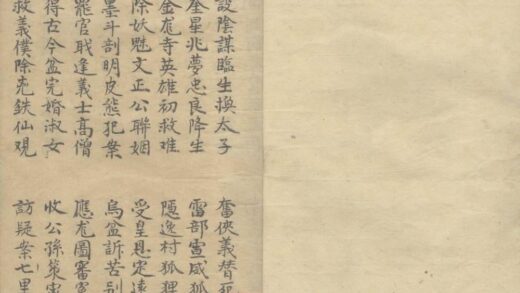 設陰謀臨生換太子 奮俠義替死
奎星兆夢忠良降生 雷部宣威狐
金尨寺英雄初救难 隱逸村狐狸
除妖魅文正公聯姻 受皇恩定遠
墨斗剖明皮熊犯案 烏盆訴苦别
罷官戝逢義士高僧 應尨圖審
得古今盆完婚淑女 收公孫策
救義僕除兇鉄仙观 訪疑案七里